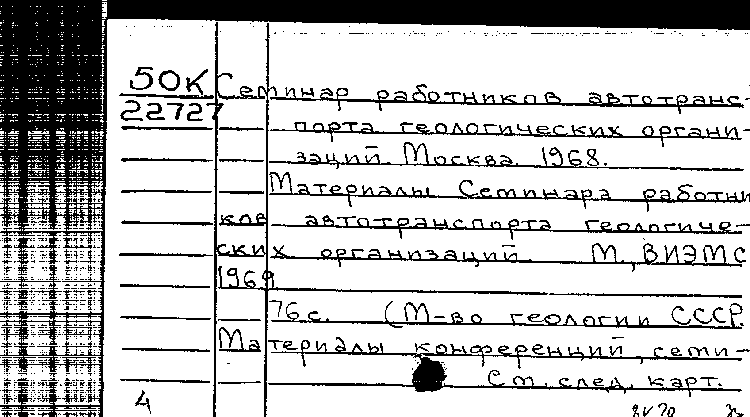 50К Семинар работников автотранс-
22727 порта геологических органи-
заций. Москва. 1968.
Материалы Семинара работни
ков автотранспорта геологиче-
ских организаций. М., ВИЭМС
1969
76с. (М-во геологии СССР.
Материалы конференций, семи-
См. след. карт.
4